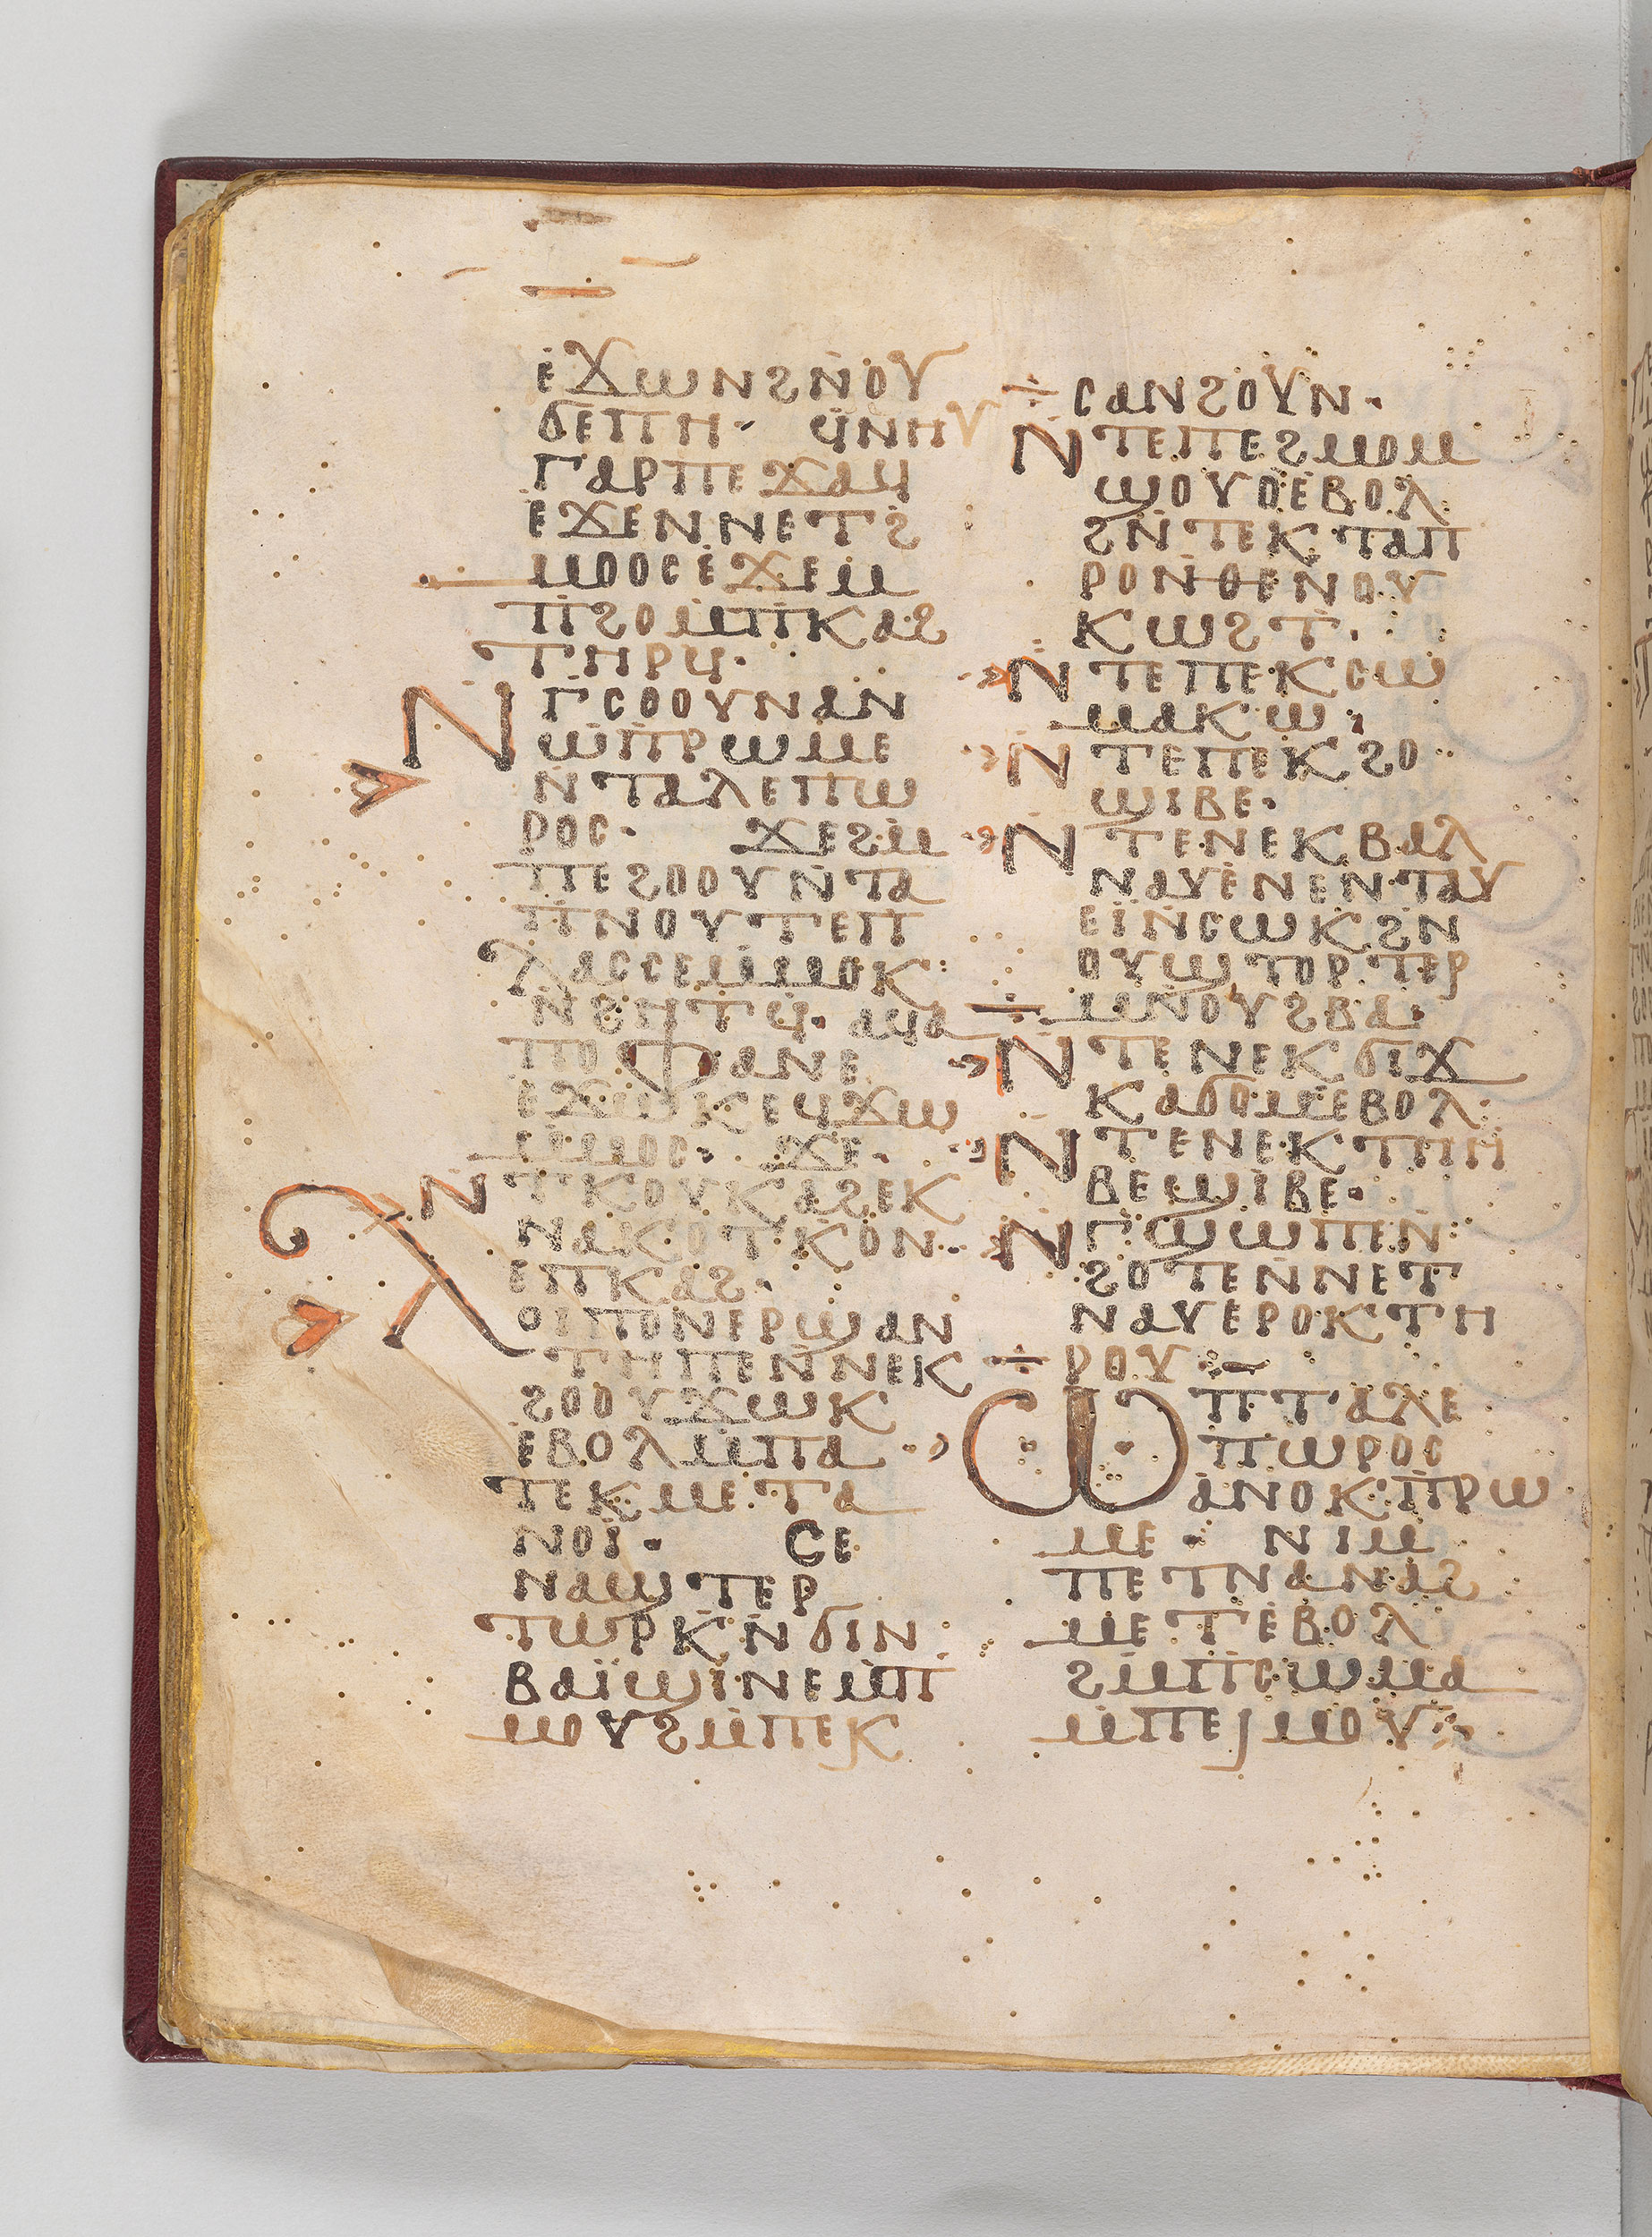 ⲉϫⲱⲛϩⲛⲟⲩ
ϭⲉⲡⲏ· ϥⲛⲏⲩ
ⲅⲁⲣⲡⲉϫⲁϥ
ⲉϫⲉⲛⲛⲉⲧϩ
ⲙⲟⲟⲥⲉϫⲉⲙ
ⲡϩⲟⲙⲡⲕⲁϩ
ⲧⲏⲣϥ·
ⲛⲅⲥⲟⲟⲩⲛⲁⲛ
ⲱⲡⲣⲱⲙⲉ
ⲛⲧⲁⲗⲉⲡⲱ
ⲣⲟⲥ· ϫⲉϩⲙ
ⲡⲉϩⲟⲟⲩⲛⲧⲁ
ⲡⲛⲟⲩⲧⲉⲡ
ⲗⲁⲥⲥⲉⲙⲙⲟⲕ
ⲛϩⲏⲧϥ· ⲁϥⲁ
ⲡⲟⲫⲁⲛⲉ
ⲉϫⲱⲕⲉϥϫⲱ
ⲙⲙⲟⲥ· ϫⲉ·
ⲛⲧⲕⲟⲩⲕⲁϩⲉⲕ
ⲛⲁⲕⲟⲧⲕⲟⲛ
ⲉⲡⲕⲁϩ·
ⲗⲟⲓⲡⲟⲛⲉⲣϣⲁⲛ
ⲧⲏⲡⲉⲛⲛⲉⲕ
ϩⲟⲟⲩϫⲱⲕ
ⲉⲃⲟⲗⲙⲡⲁ
ⲧⲉⲕⲙⲉⲧⲁ
ⲛⲟⲓ̈· ⲥⲉ
ⲛⲁϣⲧⲉⲣ
ⲧⲱⲣⲕⲛϭⲓⲛ
ⲃⲁⲓ̈ϣⲓⲛⲉⲙⲡ
ⲙⲟⲩϩⲙⲡⲉⲕ
ⲥⲁⲛϩⲟⲩⲛ·
ⲛⲧⲉⲡⲉϩⲙⲟⲙ
ϣⲟⲩⲟⲉⲃⲟⲗ
ϩⲛⲧⲉⲕⲧⲁⲡ
ⲣⲟⲛⲑⲉⲛⲟⲩ
ⲕⲱϩⲧ·
ⲛⲧⲉⲡⲉⲕⲥⲱ
ⲙⲁⲕⲱ·
ⲛⲧⲉⲡⲉⲕϩⲟ
ϣⲓⲃⲉ·
ⲛⲧⲉⲛⲉⲕⲃⲁⲗ
ⲛⲁⲩⲉⲛⲉⲛⲧⲁⲩ
ⲉⲓ̈ⲛⲥⲱⲕϩⲛ
ⲟⲩϣⲧⲟⲣⲧⲉⲣ
ⲙⲛⲟⲩϩⲃⲁ·
ⲛⲧⲉⲛⲉⲕϭⲓϫ
ⲕⲁϭⲟⲙⲉⲃⲟⲗ
ⲛⲧⲉⲛⲉⲕⲧⲏⲏ
ⲃⲉϣⲓⲃⲉ·
ⲛⲅϣⲱⲡⲉⲛ
ϩⲟⲧⲉⲛⲛⲉⲧ
ⲛⲁⲩⲉⲣⲟⲕⲧⲏ
ⲣⲟⲩ
ⲱⲡⲧⲁⲗⲉ
ⲡⲱⲣⲟⲥ
ⲁⲛⲟⲕⲡⲣⲱ
ⲙⲉ· ⲛⲓⲙ
ⲡⲉⲧⲛⲁⲛⲁϩ
ⲙⲉⲧⲉⲃⲟⲗ
ϩⲙⲡⲥⲱⲙⲁ
ⲙⲡⲉⲓⲙⲟⲩ